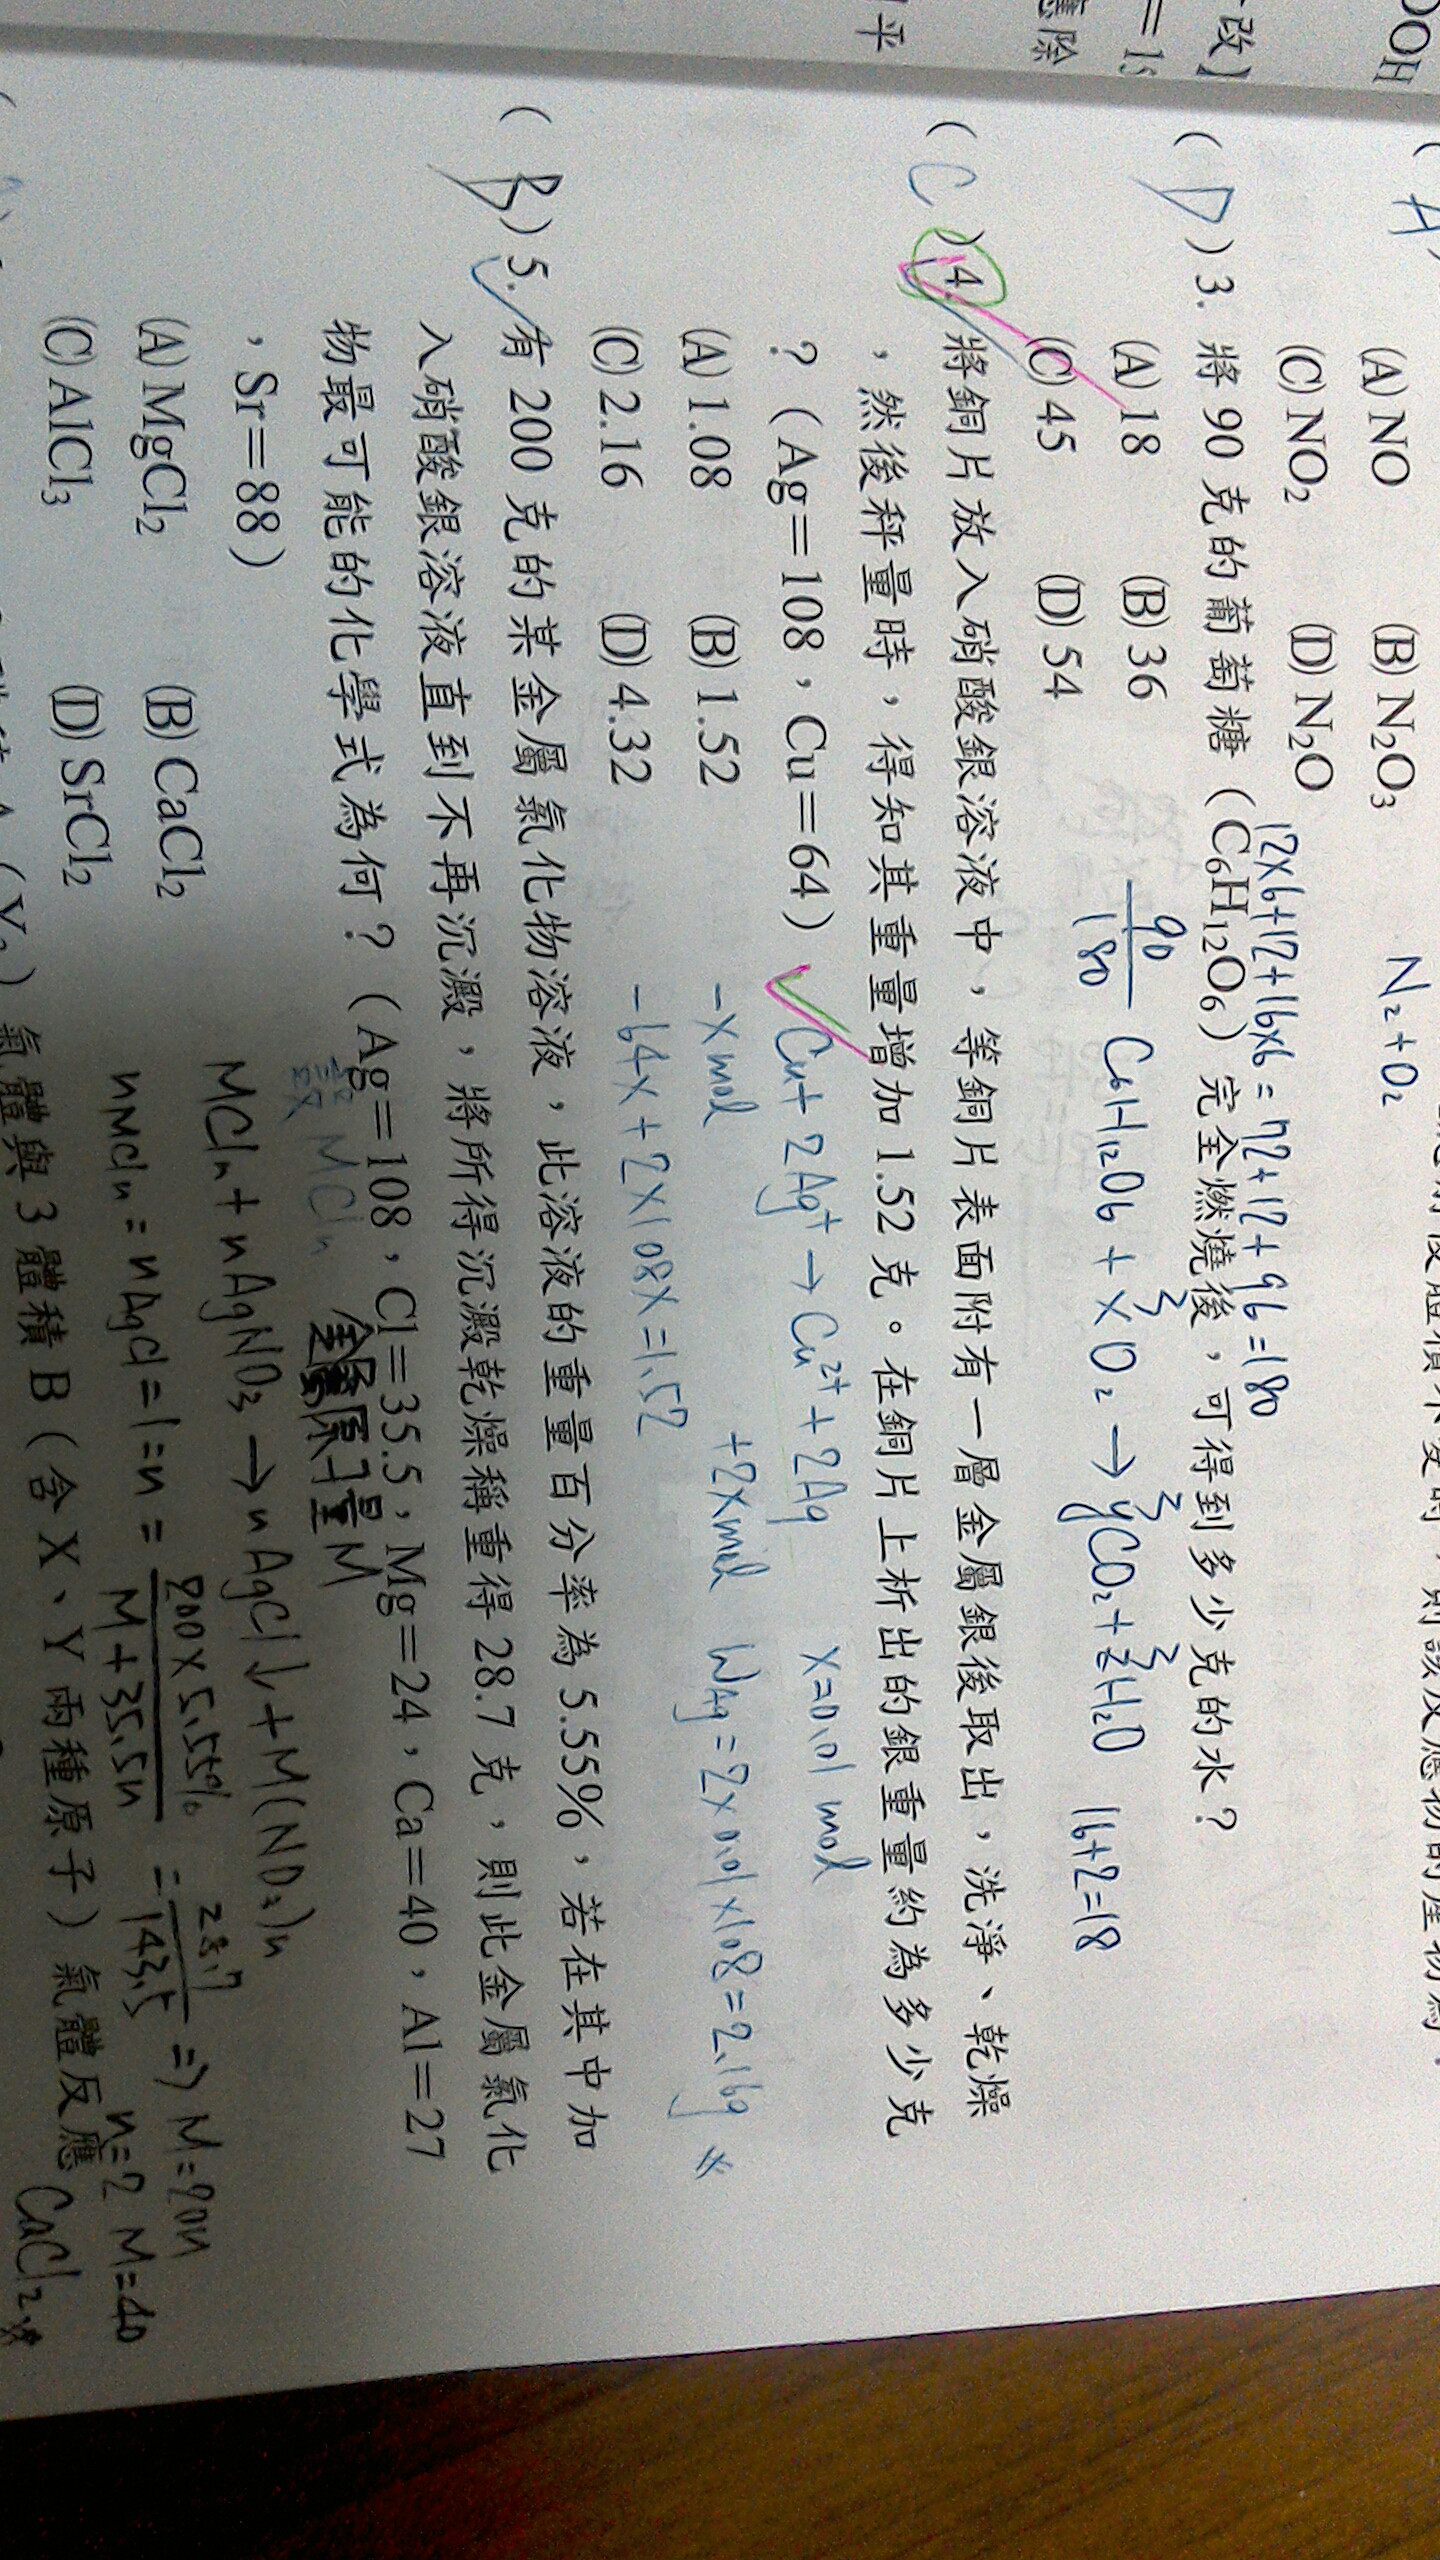 OOH
改】
= 1s
應除
平
( A
(A) NO (B) N₂O₃
(C) NO₂ (D) N₂O
N₂+O₂
12×6+12+16×6=72+12+96=180
( D ) 3. 將 90 克的葡萄糖(C₆H₁₂O₆)完全燃燒後,可得到多少克的水?
(A) 18 (B) 36
(C) 45 (D) 54
90/180 C₆H₁₂O₆ + x O₂ → yCO₂+zH₂O 16+2=18
( C ) 4. 將銅片放入硝酸銀溶液中,等銅片表面附有一層金屬銀後取出,洗淨、乾燥
,然後秤量時,得知其重量增加 1.52 克。在銅片上析出的銀重量約為多少克
?(Ag=108,Cu=64)
Cu+ 2Ag⁺ → Cu²⁺+2Ag x=0.01 mol
(A) 1.08 (B) 1.52
-x mol +2x mol W_Ag=2×0.01×108=2.16g
(C) 2.16 (D) 4.32
-64x+2×108x=1.52
( B ) 5. 有 200 克的某金屬氯化物溶液,此溶液的重量百分率為 5.55%,若在其中加
入硝酸銀溶液直到不再沉澱,將所得沉澱乾燥稱重得 28.7 克,則此金屬氯化
物最可能的化學式為何?(Ag=108,Cl=35.5,Mg=24,Ca=40,Al=27
,Sr=88)
設 MClₙ 金屬原子量 M
MClₙ + nAgNO₃ → nAgCl↓+M(NO₃)n
(A) MgCl₂ (B) CaCl₂
nMClₙ : nAgCl = 1:n = 200×5.55%/M+35.5n : 28.7/143.5 ⇒ M=20n
n=2 M=40
(C) AlCl₃ (D) SrCl₂
CaCl₂
氣體與 3 體積 B(含 X、Y 兩種原子)氣體反應